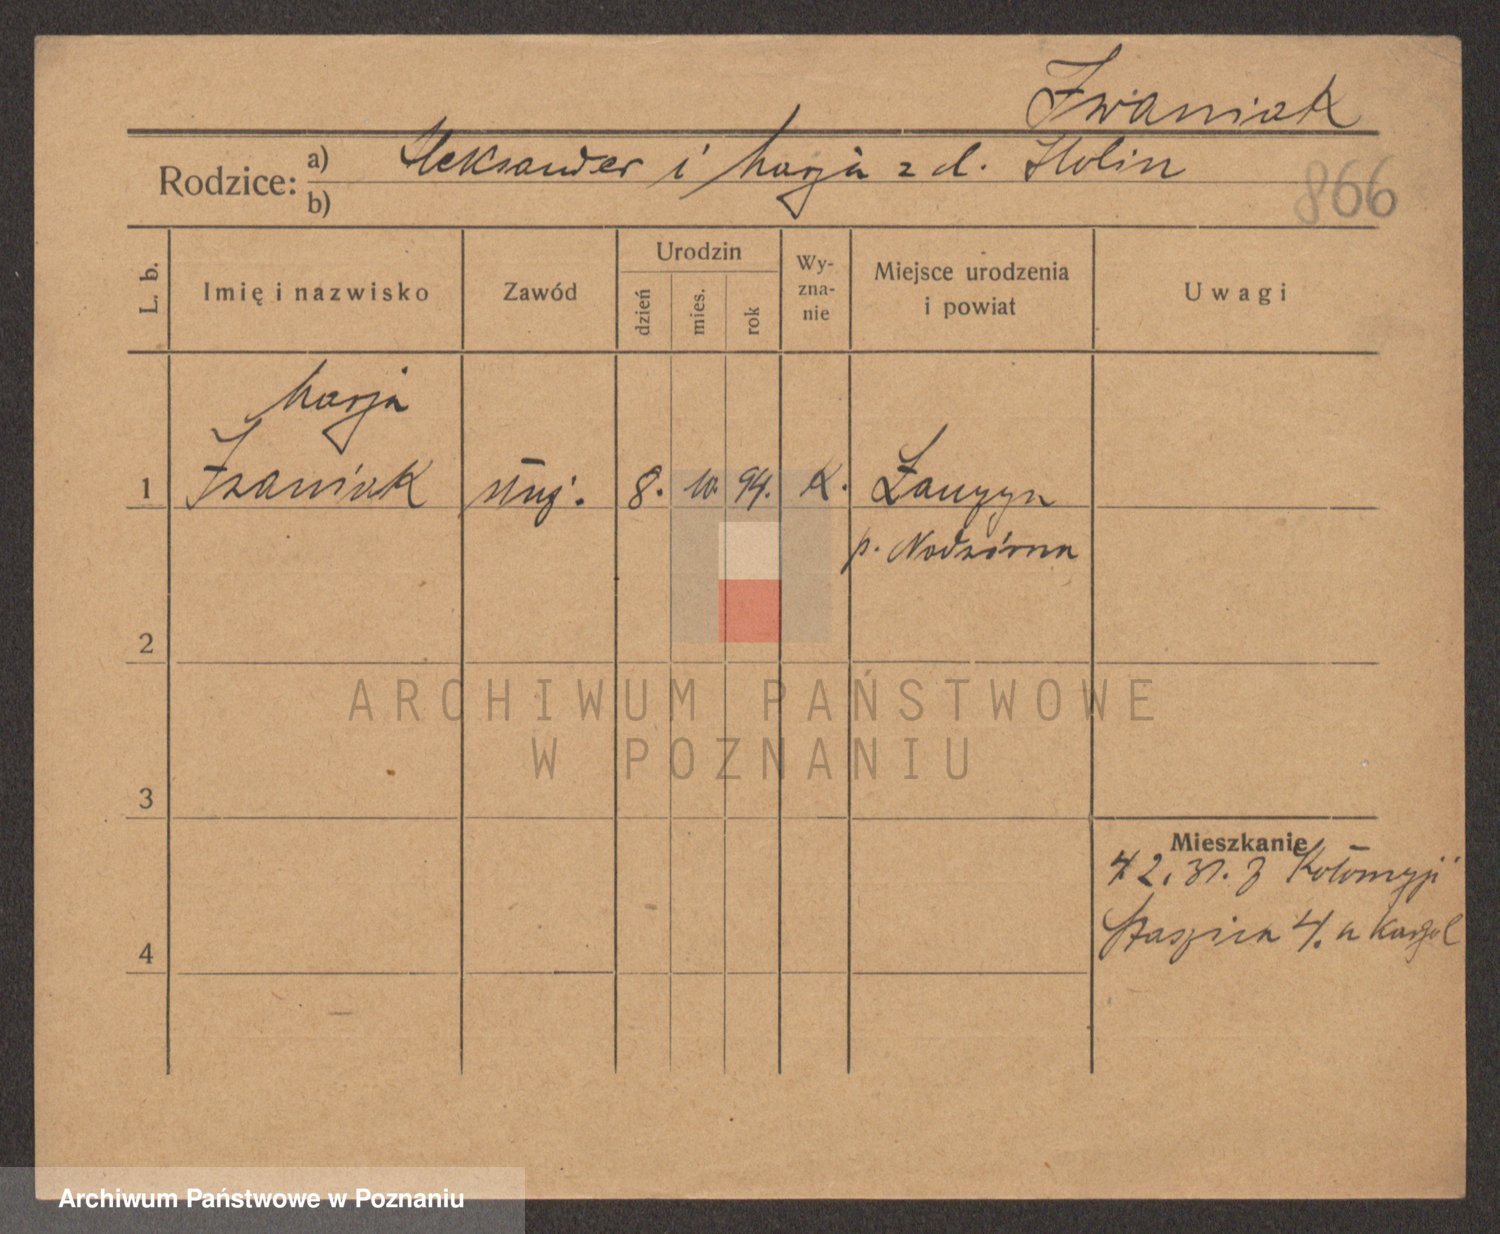 Iwaniak
Rodzice: a) Aleksander i Marja z d. Holin
b)
866
L. b.
Imię i nazwisko
Zawód
Urodzin
dzień
mies.
rok
Wy-
zna-
nie
Miejsce urodzenia
i powiat
Uwagi
Marja
1 Iwaniak służ. 8. 10. 94. K. Łanczyn
p. Nadwórna
2
3
4
Mieszkanie
4 2. 31. z Kołomyji
Staszica 4. u
ARCHIWUM PAŃSTWOWE
W POZNANIU
Archiwum Państwowe w Poznaniu